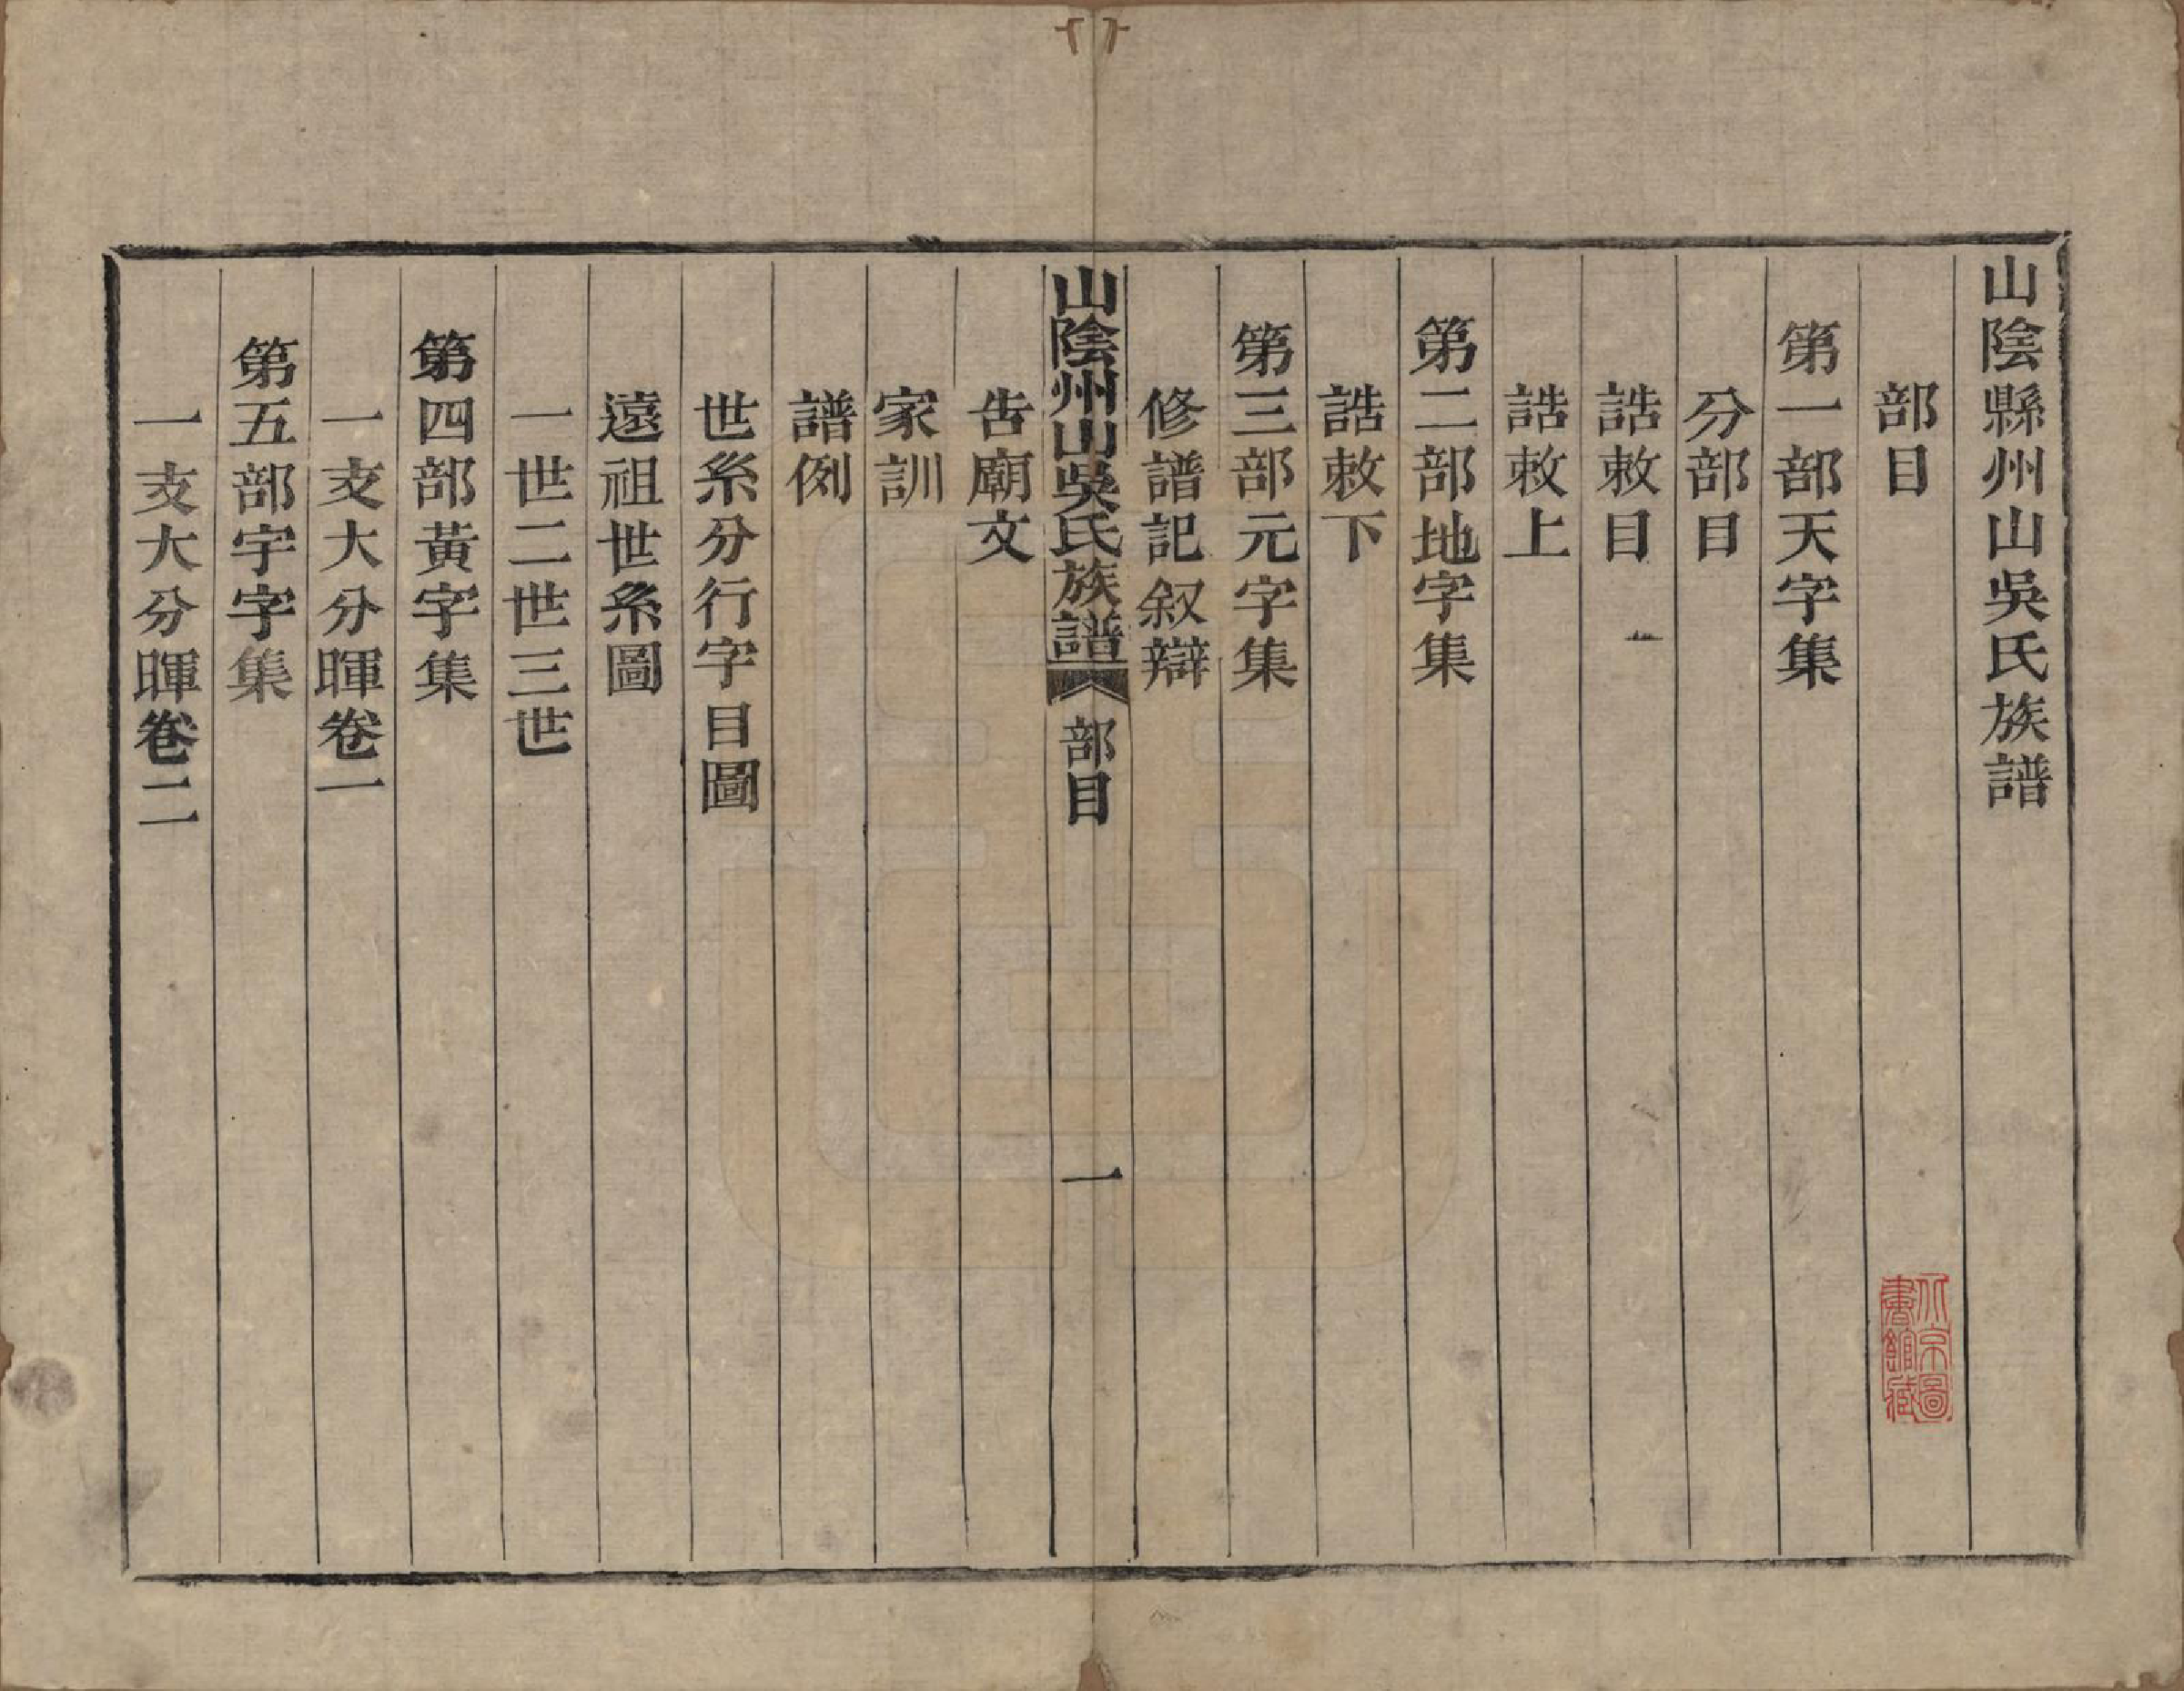 山陰縣州山吳氏族譜
部目
第一部天字集
分部目
誥敕目
誥敕上
第二部地字集
誥敕下
第三部元字集
修譜記叙辯
山陰州山吳氏族譜 部目 一
告廟文
家訓
譜例
世系分行字目圖
遠祖世系圖
一世二世三世
第四部黃字集
一支大分暉卷一
第五部宇字集
一支大分暉卷二
北京圖書館藏